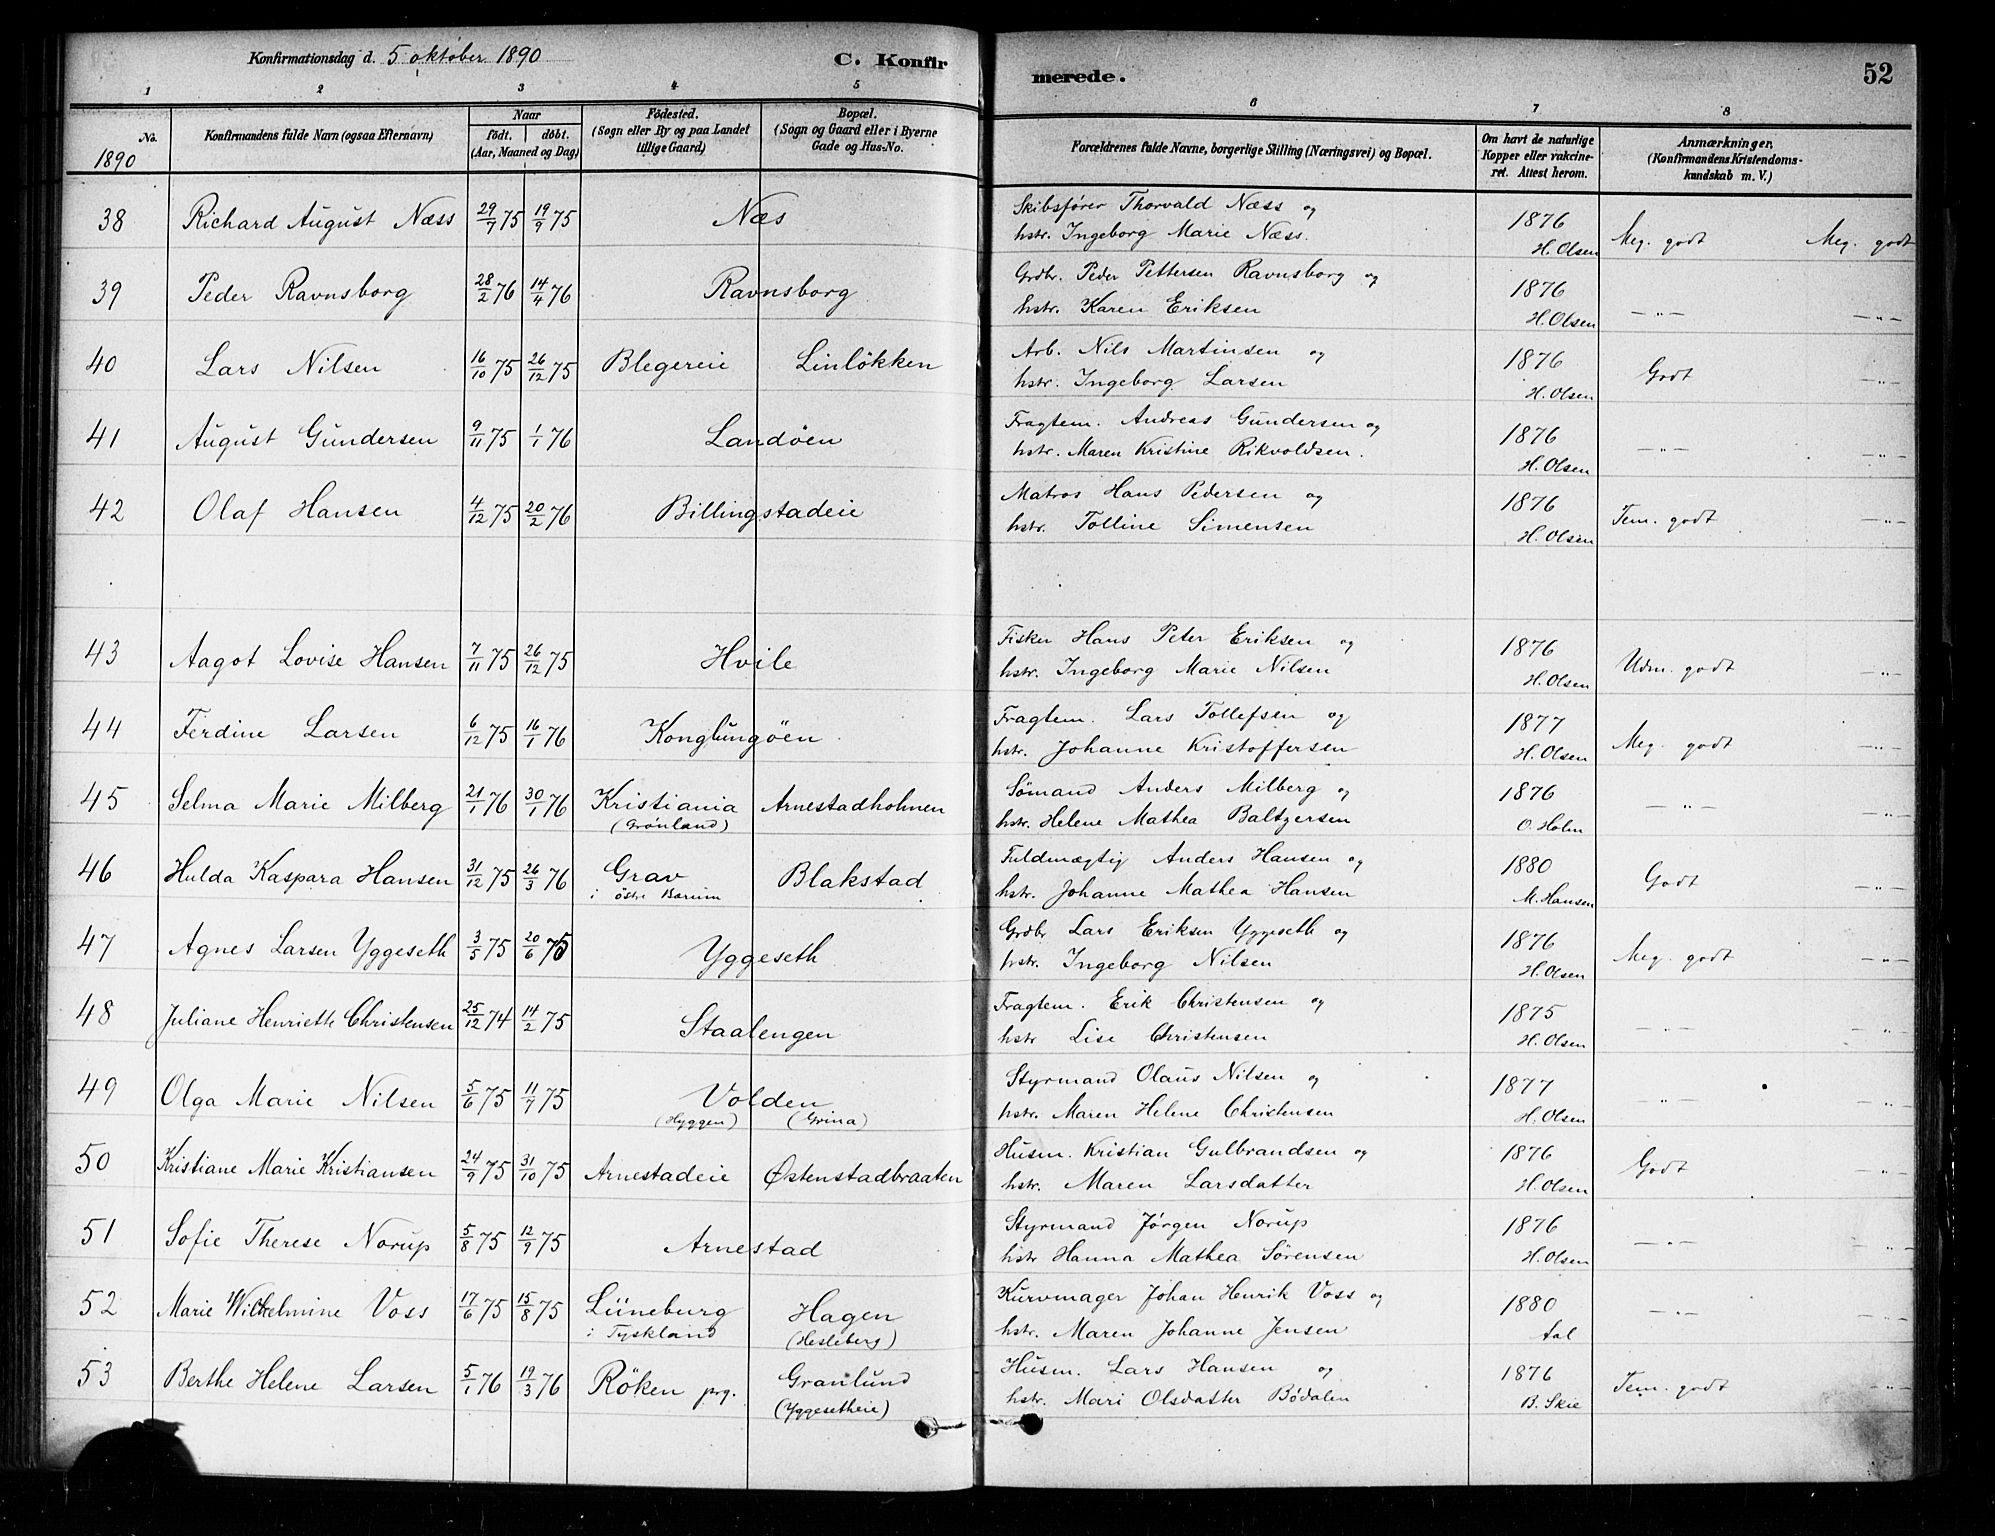 Konfirmationsdag d. 5 oktober 1890
C. Konfir merede. 52
1 2 3 4 5 6 7 8
No. Konfirmandens fulde Navn (ogsaa Efternavn) Naar födt. döbt. (Aar, Maaned og Dag) Födested. (Sogn eller By og paa Landet tillige Gaard) Bopæl. (Sogn og Gaard eller i Byerne Gade og Hus-No. Forældrenes fulde Navne, borgerlige Stilling (Næringsvei) og Bopæl. Om havt de naturlige Kopper eller vakcineret. Attest herom. Anmærkninger. (Konfirmandens Kristendomskundskab m. V.)
1890
38 Richard August Næss 29/7 75 19/9 75 Næs Skibsfører Thorvald Næss og
hstr. Ingeborg Marie Næss. 1876 H. Olsen Meg. godt Meg. godt
39 Peder Ravnsborg 28/2 76 14/4 76 Ravnsborg Grdbr. Peder Pettersen Ravnsborg og
hstr. Karen Eriksen 1876 H. Olsen —„— —„—
40 Lars Nilsen 16/10 75 26/12 75 Blegereie Linlökken Arb. Nils Martinsen og
hstr. Ingeborg Larsen 1876 H. Olsen Godt —„—
41 August Gundersen 9/11 75 1/1 76 Landöen Fragtem. Andreas Gundersen og
hstr. Maren Kristine Rikvoldsen. 1876 H. Olsen —„— —„—
42 Olaf Hansen 4/12 75 20/2 76 Billingstadeie Matros Hans Pedersen og
hstr. Tolline Simensen 1876 H. Olsen Tem. godt —„—
43 Aagot Lovise Hansen 7/11 75 26/12 75 Hvile Fisker Hans Peter Eriksen og
hstr. Ingeborg Marie Nilsen 1876 H. Olsen Udm. godt —„—
44 Ferdine Larsen 6/12 75 16/1 76 Konglungöen Fragtem. Lars Tollefsen og
hstr. Johanne Kristoffersen 1877 H. Olsen Meg. godt —„—
45 Selma Marie Milberg 21/1 76 30/1 76 Kristiania (Grønland) Arnestadholmen Sømand Anders Milberg og
hstr. Helene Mathea Baltzersen 1876 O. Holm —„— —„—
46 Hulda Kaspara Hansen 31/12 75 26/3 76 Grav i östre Bærum Blakstad Fuldmægtig Anders Hansen og
hstr. Johanne Mathea Hansen 1880 M. Hansen Godt —„—
47 Agnes Larsen Yggeseth 3/5 75 20/6 75 Yggeseth Grdbr Lars Eriksen Yggeseth og
hstr. Ingeborg Nilsen 1876 H. Olsen Meg. godt —„—
48 Juliane Henriette Christensen 25/12 74 14/2 75 Staalengen Fragtem. Erik Christensen og
hstr Lise Christensen 1875 H. Olsen —„— —„—
49 Olga Marie Nilsen 5/6 75 11/7 75 Volden (Hyggen) (Grina) Styrmand Olaus Nilsen og
hstr. Maren Helene Christensen 1877 H. Olsen —„— —„—
50 Kristiane Marie Kristiansen 24/9 75 31/10 75 Arnestadeie Østenstadbraaten Husm. Kristian Gulbrandsen og
hstr. Maren Larsdatter 1876 H. Olsen Godt —„—
51 Sofie Therese Norup 5/8 75 12/9 75 Arnestad Styrmand Jørgen Norup
hstr Hanna Mathea Sörensen 1876 H. Olsen —„— —„—
52 Marie Wilhelmine Voss 17/6 75 15/8 75 Lüneburg i Tyskland Hagen (Hesleberg) Kurvmager Johan Henrik Voss og
hstr. Maren Johanne Jensen 1880 Aal —„— —„—
53 Berthe Helene Larsen 5/1 76 19/3 76 Röken prg. Granlund (Yggesetheie) Husm. Lars Hansen og
hstr. Mari Olsdatter Bødalen 1876 B. Skie Tem. godt —„—